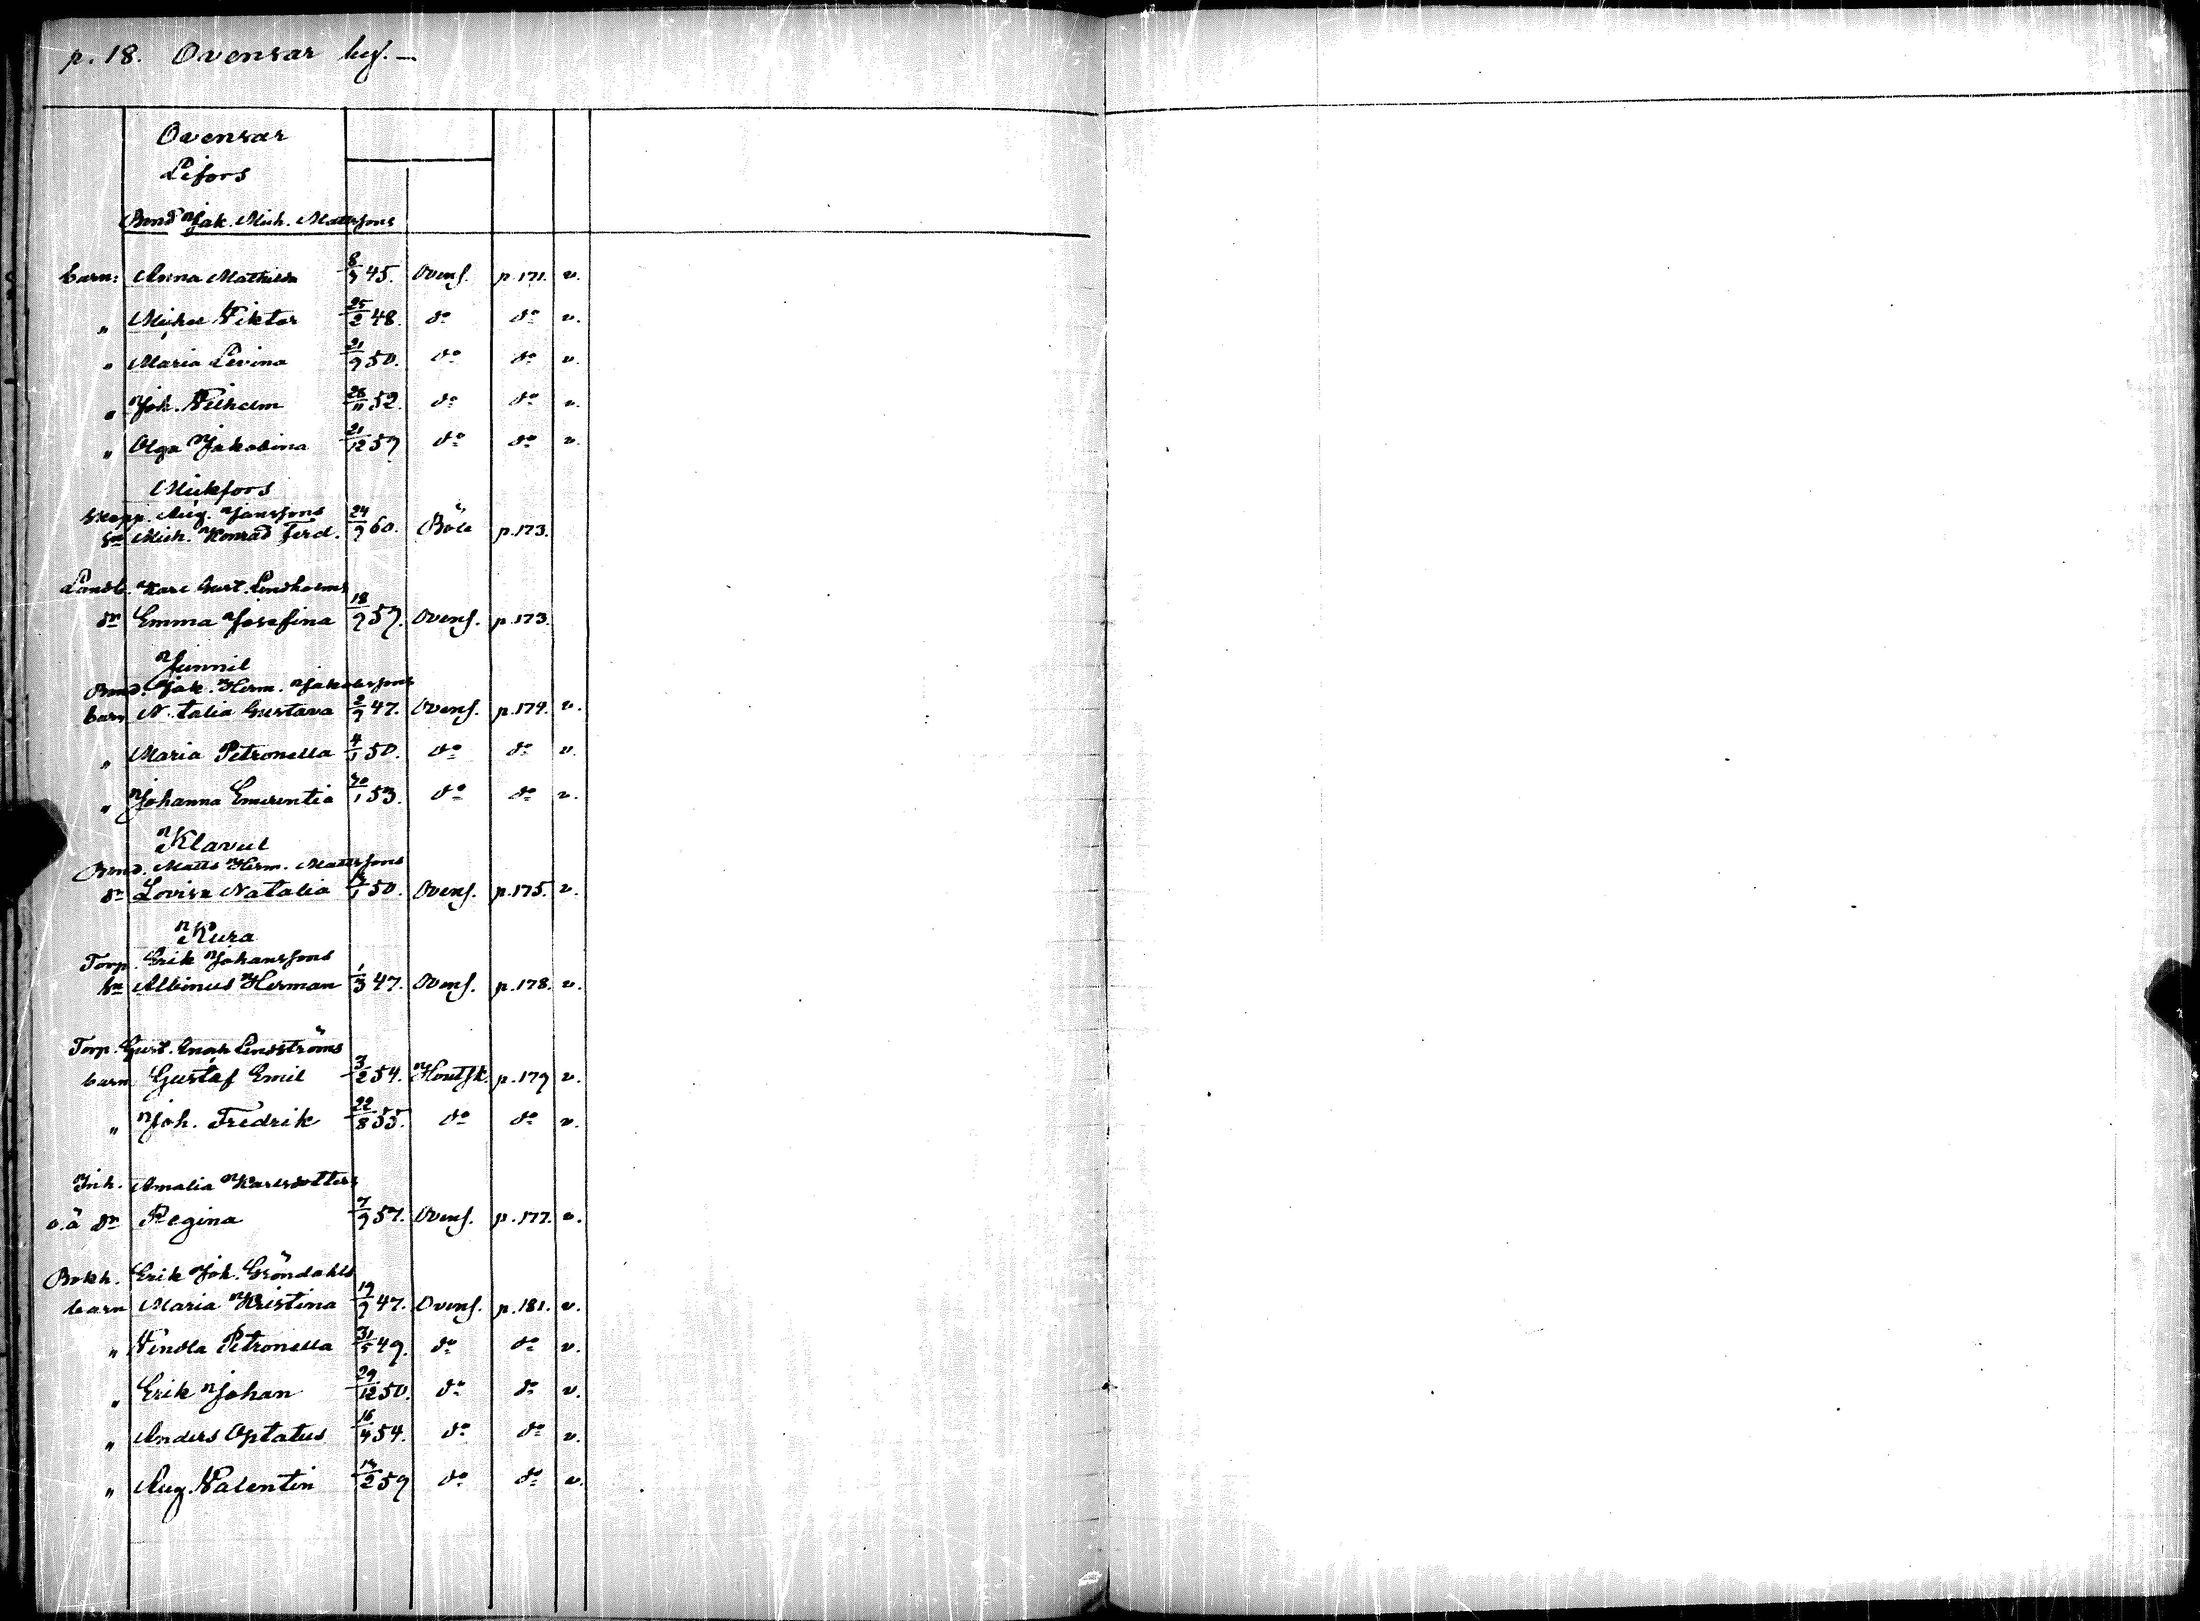 p. 18. Ovensar beg. —
Ovensar
Lifors
Bond Jak. Mich. Mattssons
barn: Anna Mathilda 8/9 45. Ovens. p. 171. v.
" Michel Viktor 25/2 48. do do v.
" Maria Levina 21/9 50. do do v.
" Joh. Vilhelm 28/11 52. do do v.
" Olga Jakobina 21/12 57 do do v.
Mickfors
Skepp. Aug. Janssons
sn Mich. Konrad Ferd. 24/9 60. Böle p. 173.
Landb. Karl Gust. Lindholms
dr Emma Josefina 18/9 57. Ovens. p. 173.
Junnil
Bond. Jak. Herm. Jakobssons
barn N. talia Gustava 2/9 47. Ovens. p. 174. v.
" Maria Petronella 4/1 50. do do v.
" Johanna Emerentia 30/1 53. do do v.
Klavul
Bond. Matts Herm. Mattssons
dr Lovisa Natalia /1 50. Ovens. p. 175. v.
Kura
Torp. Erik Johanssons
sn Albinus Herman 1/3 47. Ovens. p. 178. v.
Torp. Gust. Enoch Lindströms
barn Gustaf Emil 3/2 54. Houtsk. p. 179 v.
" Joh. Fredrik 22/8 55. do do v.
Inh. Amalia Karlsdotters
o.ä dr Regina 7/9 57. Ovens. p. 177. v.
Bokh. Erik Joh. Gröndahls
barn Maria Kristina 19/9 47. Ovens. p. 181. v.
" Vendla Petronella 31/5 49. do do v.
" Erik Johan 29/12 50. do do v.
" Anders Optatus 16/4 54. do do v.
" Aug. Valentin 14/2 59 do do v.